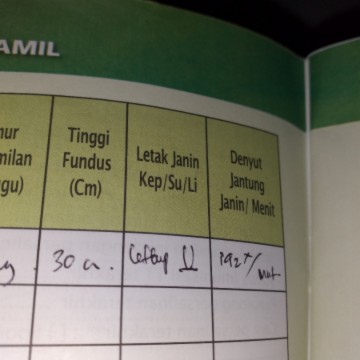 AMIL
nur
milan
gu)
Tinggi
Fundus
(Cm)
Letak Janin
Kep/Su/Li
Denyut
Jantung
Janin/ Menit
30 cm.